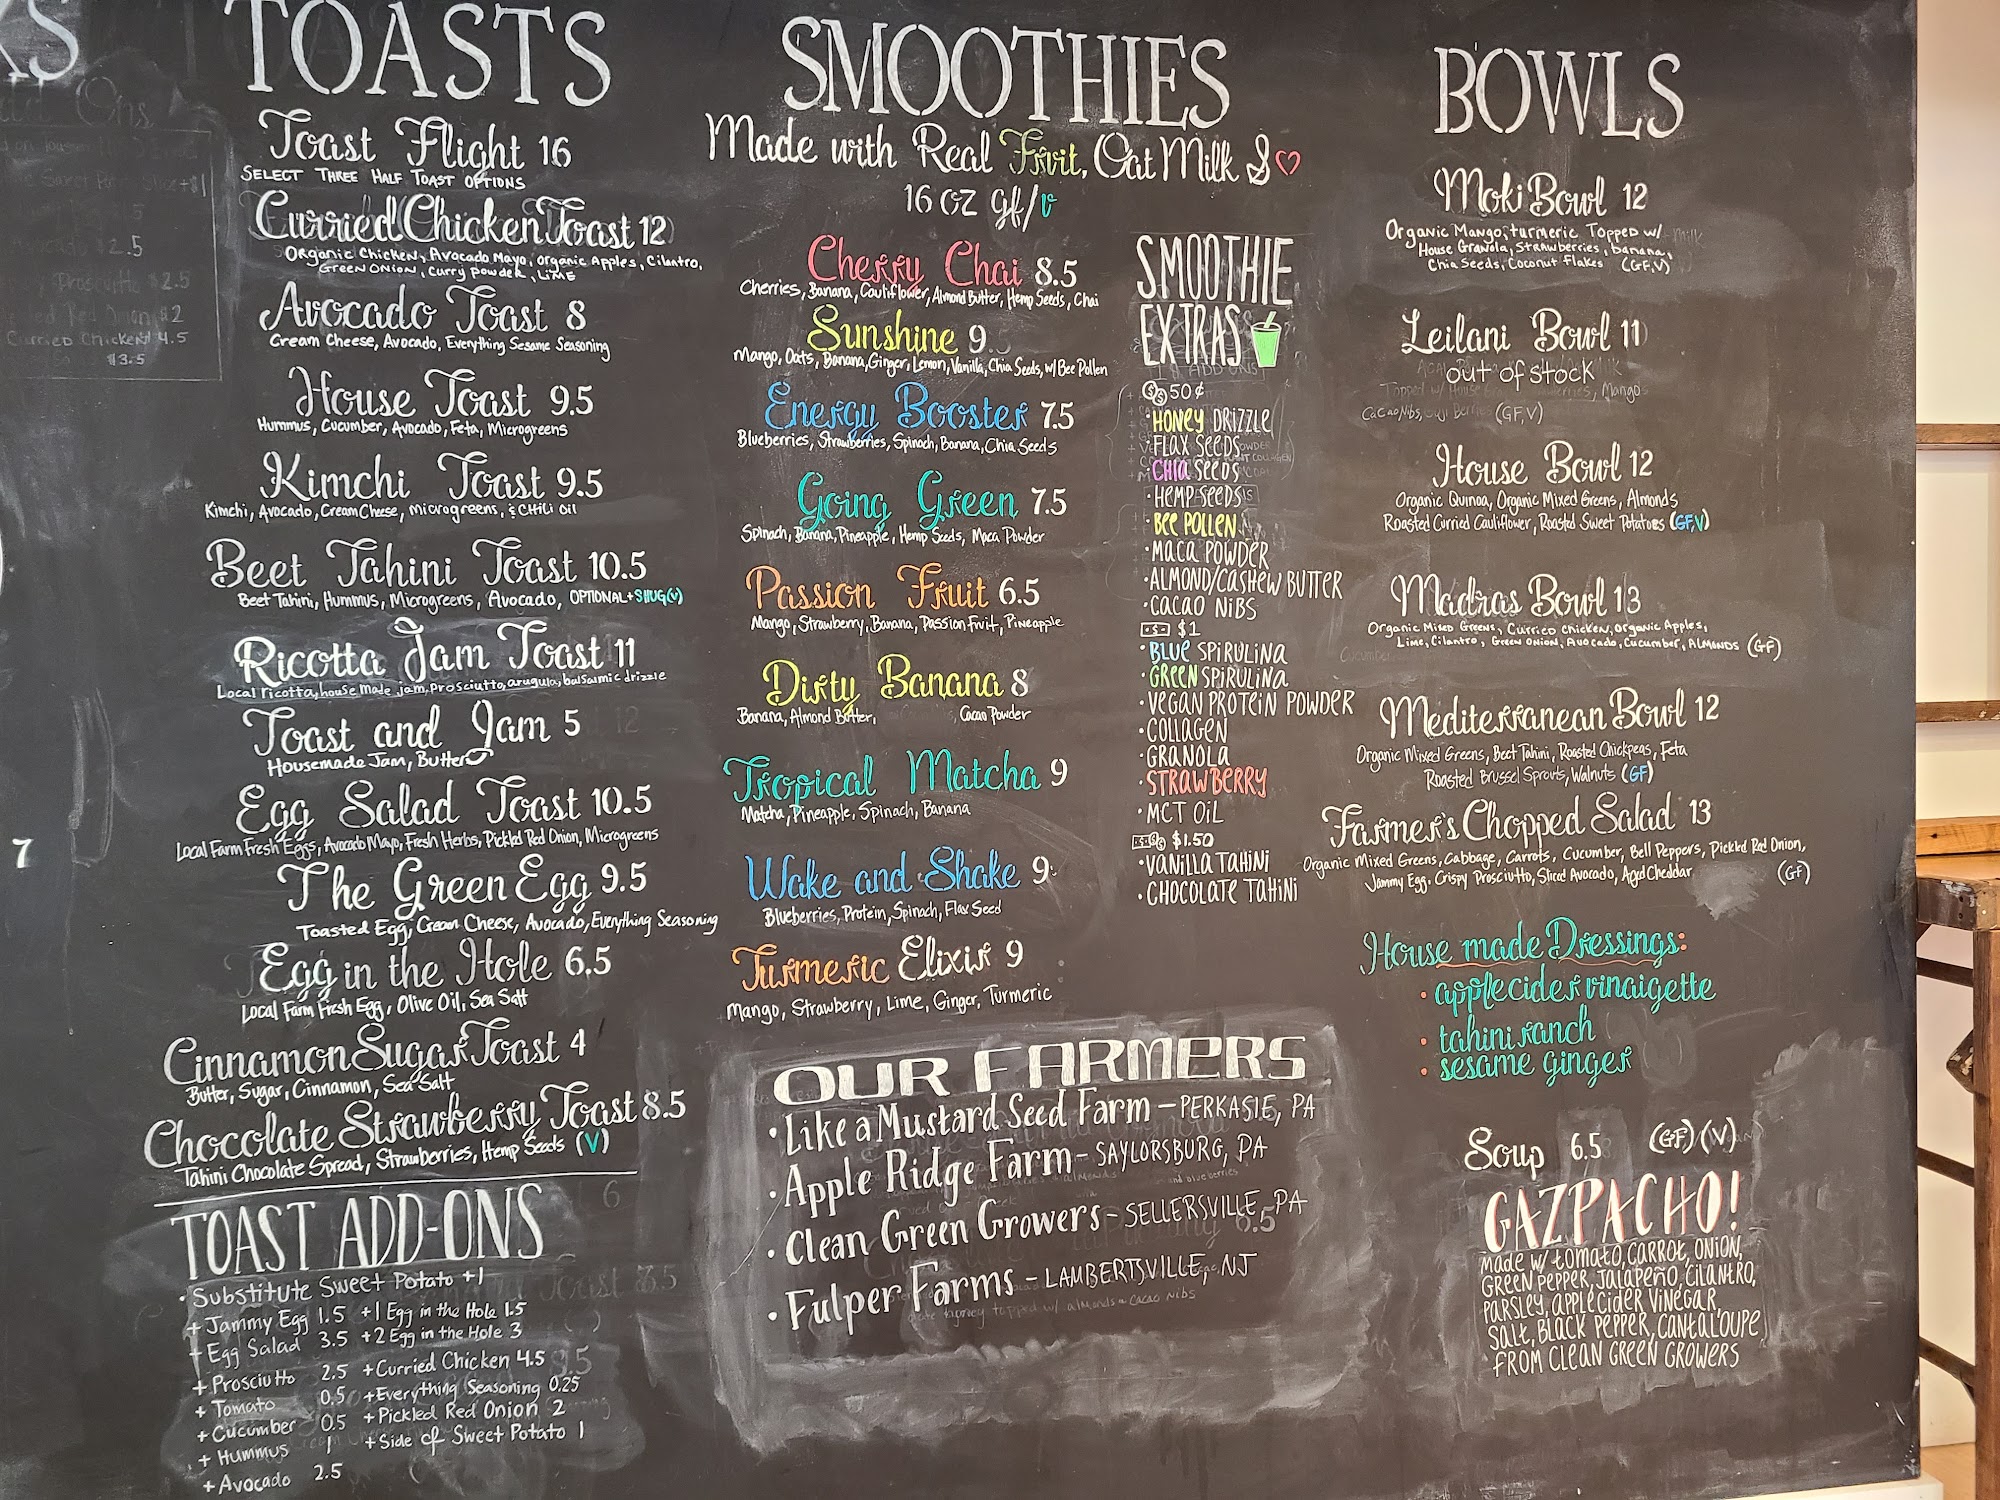 KS
TOASTS
Toast Flight 16
SELECT THREE HALF TOAST OPTIONS
Curried Chicken Toast 12
Organic Chicken, Avocado Mayo, organic Apples, Cilantro,
GREEN ONION, Curry powder, LIME
Avocado Toast 8
Cream Cheese, Avocado, Everything Sesame Seasoning
House Toast 9.5
Hummus, Cucumber, Avocado, Feta, Microgreens
Kimchi Toast 9.5
Kimchi, Avocado, Cream Cheese, microgreens, & CHILI OIL
Beet Tahini Toast 10.5
Beet Tahini, Hummus, Microgreens, Avocado, OPTIONAL + SHUG(V)
Ricotta Jam Toast 11
Local ricotta, house made jam, prosciutto, arugula, balsamic drizzle
Toast and Jam 5
Housemade Jam, Butter
Egg Salad Toast 10.5
Local Farm Fresh Eggs, Avocado Mayo, Fresh Herbs, Pickled Red Onion, Microgreens
The Green Egg 9.5
Toasted Egg, Cream Cheese, Avocado, Everything Seasoning
Egg in the Hole 6.5
Local Farm Fresh Egg, Olive Oil, Sea Salt
Cinnamon Sugar Toast 4
Butter, Sugar, Cinnamon, Sea Salt
Chocolate Strawberry Toast 8.5
Tahini Chocolate Spread, Strawberries, Hemp Seeds (V)
TOAST ADD-ONS
• Substitute Sweet Potato +1
+ Jammy Egg 1.5 +1 Egg in the Hole 1.5
+ Egg Salad 3.5 +2 Egg in the Hole 3
+ Prosciutto 2.5 +Curried Chicken 4.5
+ Tomato 0.5 +Everything Seasoning 0.25
+ Cucumber 0.5 +Pickled Red Onion 2
+ Hummus 1 +Side of Sweet Potato 1
+ Avocado 2.5
7
SMOOTHIES
Made with Real Fruit, Oat Milk & ♡
16 OZ gf/v
Cherry Chai 8.5
Cherries, Banana, Cauliflower, Almond Butter, Hemp Seeds, Chai
Sunshine 9
Mango, Oats, Banana, Ginger, Lemon, Vanilla, Chia Seeds, w/ Bee Pollen
Energy Booster 7.5
Blueberries, Strawberries, Spinach, Banana, Chia Seeds
Going Green 7.5
Spinach, Banana, Pineapple, Hemp Seeds, Maca Powder
Passion Fruit 6.5
Mango, Strawberry, Banana, Passion Fruit, Pineapple
Dirty Banana 8
Banana, Almond Butter, Cacao Powder
Tropical Matcha 9
Matcha, Pineapple, Spinach, Banana
Wake and Shake 9
Blueberries, Protein, Spinach, Flax Seed
Turmeric Elixir 9
Mango, Strawberry, Lime, Ginger, Turmeric
SMOOTHIE
EXTRAS
50¢
• HONEY DRIZZLE
• FLAX SEEDS
• CHIA SEEDS
• HEMP SEEDS
• BEE POLLEN
• MACA POWDER
• ALMOND/CASHEW BUTTER
• CACAO NIBS
$1
• BLUE SPIRULINA
• GREEN SPIRULINA
• VEGAN PROTEIN POWDER
• COLLAGEN
• GRANOLA
• STRAWBERRY
• MCT OIL
$1.50
• VANILLA TAHINI
• CHOCOLATE TAHINI
OUR FARMERS
• Like a Mustard Seed Farm – PERKASIE, PA
• Apple Ridge Farm – SAYLORSBURG, PA
• Clean Green Growers – SELLERSVILLE, PA
• Fulper Farms – LAMBERTSVILLE, NJ
BOWLS
Moki Bowl 12
Organic Mango, turmeric Topped w/
House Granola, Strawberries, banana,
Chia Seeds, Coconut Flakes (GF,V)
Leilani Bowl 11
OUT OF STOCK
House Bowl 12
Organic Quinoa, Organic Mixed Greens, Almonds
Roasted Curried Cauliflower, Roasted Sweet Potatoes (GF,V)
Madras Bowl 13
Organic Mixed Greens, Curried Chicken, Organic Apples,
Lime, Cilantro, Green Onion, Avocado, Cucumber, ALMONDS (GF)
Mediterranean Bowl 12
Organic Mixed Greens, Beet Tahini, Roasted Chickpeas, Feta
Roasted Brussel Sprouts, Walnuts (GF)
Farmer's Chopped Salad 13
Organic Mixed Greens, Cabbage, Carrots, Cucumber, Bell Peppers, Pickled Red Onion,
Jammy Egg, Crispy Prosciutto, Sliced Avocado, Aged Cheddar (GF)
House made Dressings:
• apple cider vinaigette
• tahini ranch
• sesame ginger
Soup 6.5 (GF)(V)
GAZPACHO!
Made w/ tomato, carrot, onion,
green pepper, jalapeño, cilantro,
parsley, apple cider vinegar,
salt, black pepper, cantaloupe
from clean green growers